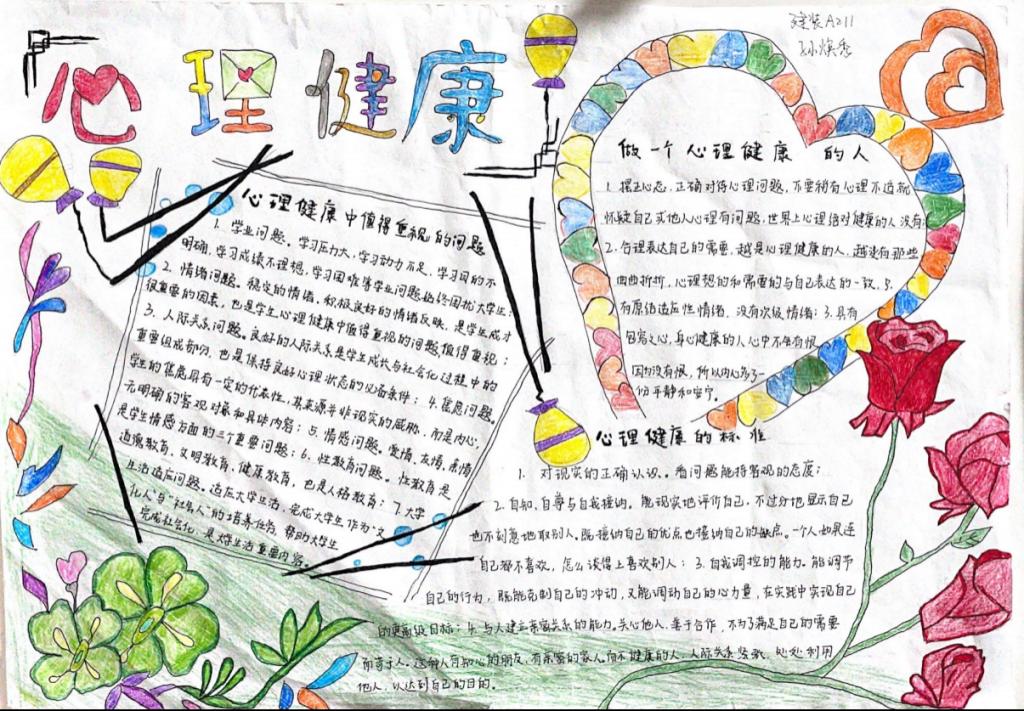 心理健康
建装A211
孙焕秀
心理健康中值得重视的问题
1. 学业问题。学习压力大,学习动力不足,学习目的不
明确,学习成绩不理想,学习困难等学业问题始终困扰大学生;
2. 情绪问题。稳定的情绪,积极良好的情绪反映,是学生成才
很重要的因素,也是学生心理健康中值得重视的问题值得重视;
3. 人际关系问题。良好的人际关系是学生成长与社会化过程中的
重要组成部份,也是保持良好心理状态的必备条件;4. 焦虑问题。
学生的焦虑具有一定的代表性,其来源并非现实的威胁,而是内心,
无明确的客观对象和具体内容;5. 情感问题。爱情、友情、亲情
是学生情感方面的三个重要问题;6. 性教育问题。性教育是
道德教育、文明教育、健康教育,也是人格教育;7. 大学
生活适应问题。适应大学生活,完成大学生作为“文
化人”与“社会人”的培养任务,帮助大学生
完成社会化,是大学生活重要内容。
做一个心理健康的人
1. 摆正心态,正确对待心理问题,不要稍有心理不适就
怀疑自己或他人心理有问题,世界上心理绝对健康的人没有;
2. 合理表达自己的需要,越是心理健康的人,越没有那些
曲曲折折,心理想的和需要的与自己表达的一致,
有原始适应性情绪,没有次级情绪;3. 具有
包容之心,身心健康的人心中不会有恨
因为没有恨,所以内心多了一
份平静和安宁。
心理健康的标准
1. 对现实的正确认识。看问题能持客观的态度;
2. 自知,自尊与自我接纳。能现实地评价自己,不过分地显示自己
也不刻意地取别人。既接纳自己的优点也接纳自己的缺点。一个人如果连
自己都不喜欢,怎么谈得上喜欢别人;3. 自我调控的能力。能调节
自己的行为,既能克制自己的冲动,又能调动自己的心力量,在实践中实现自己
的更高级目标;4. 与人建立亲密关系的能力。关心他人,善于合作,不为了满足自己的需要
而苛于人。这种人有知心的朋友,有亲密的家人。而不健康的人,人际关系紧张,处处利用
他人,以达到自己的目的。